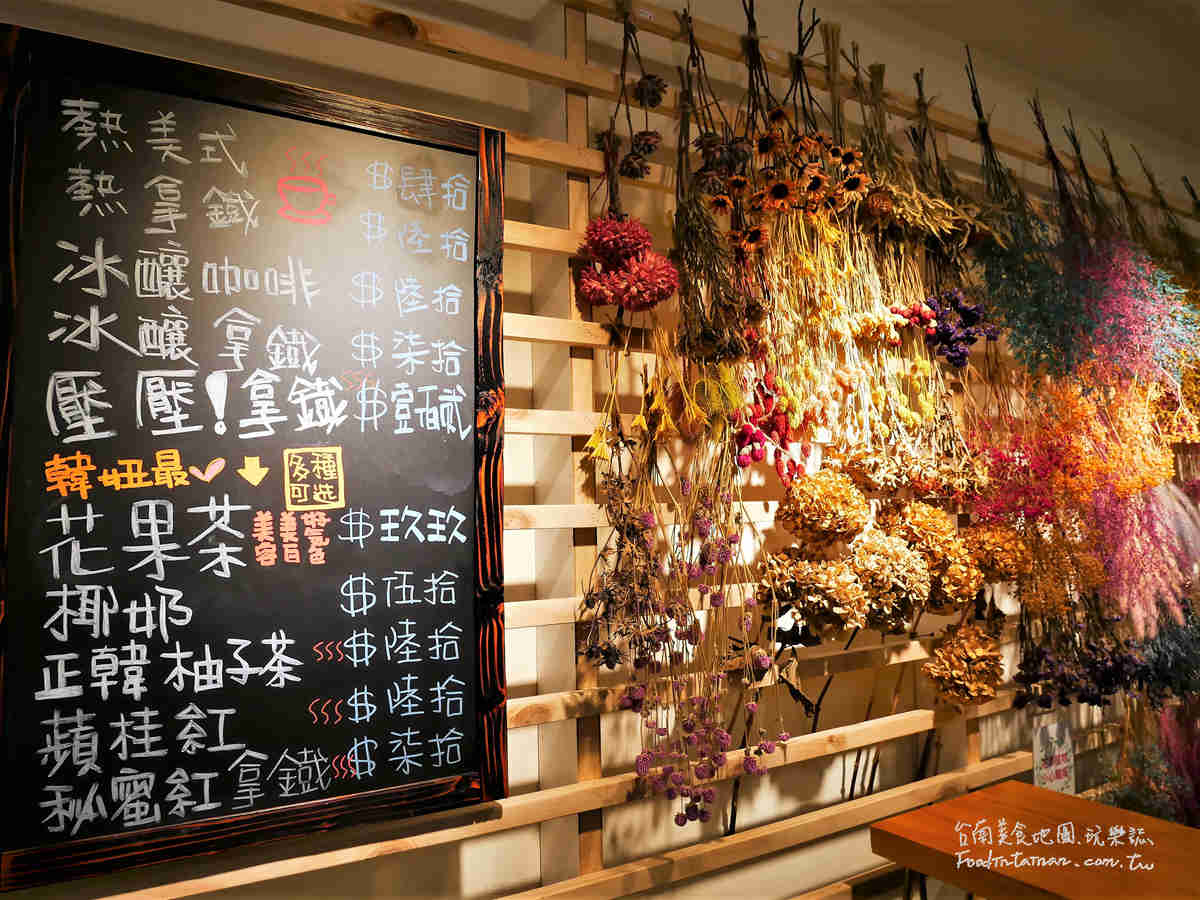 熱美式 $肆拾
熱拿鐵 $陸拾
冰釀咖啡 $陸拾
冰釀拿鐵 $柒拾
壓壓！拿鐵 $壹百貳
韓妞最
多種
可选
花果茶 $玖玖
美容
美白
好氣色
椰奶 $伍拾
正韓柚子茶 $陸拾
蘋桂紅 $陸拾
秘蜜紅拿鐵 $柒拾
台南美食地圖.玩樂誌
Foodintainan.com.tw